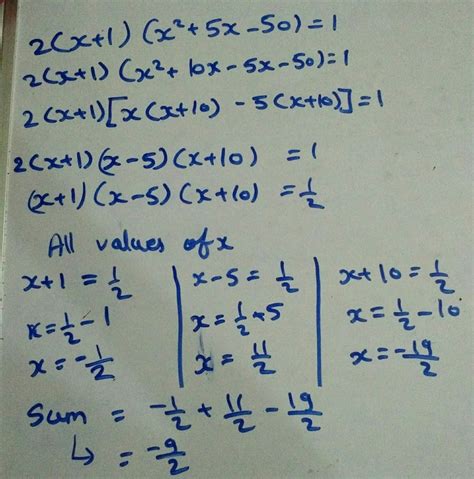 2(x+1) (x²+5x-50)=1
2(x+1) (x²+10x-5x-50)=1
2(x+1)[x(x+10) -5(x+10)]=1
2(x+1)(x-5)(x+10) = 1
(x+1)(x-5)(x+10) = 1/2
All values of x
x+1 = 1/2 | x-5 = 1/2 | x+10 = 1/2
x = 1/2 - 1 | x = 1/2 + 5 | x = 1/2 - 10
x = -1/2 | x = 11/2 | x = -19/2
Sum = -1/2 + 11/2 - 19/2
↳ = -9/2